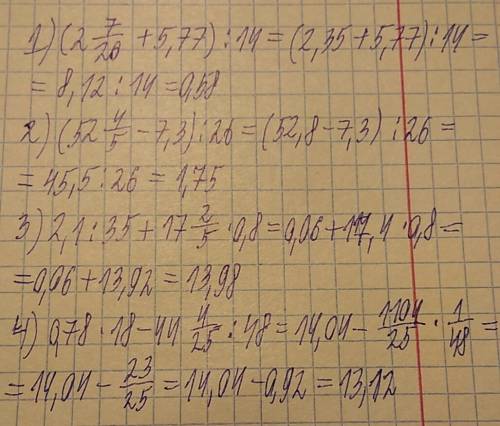 1) (2 7/20 + 5,77) : 14 = (2,35 + 5,77) : 14 =
= 8,12 : 14 = 0,58
2) (52 4/5 - 7,3) : 26 = (52,8 - 7,3) : 26 =
= 45,5 : 26 = 1,75
3) 2,1 : 35 + 17 2/5 · 0,8 = 0,06 + 17,4 · 0,8 =
= 0,06 + 13,92 = 13,98
4) 0,78 · 18 - 44 4/25 : 48 = 14,04 - 1104/25 · 1/48 =
= 14,04 - 23/25 = 14,04 - 0,92 = 13,12